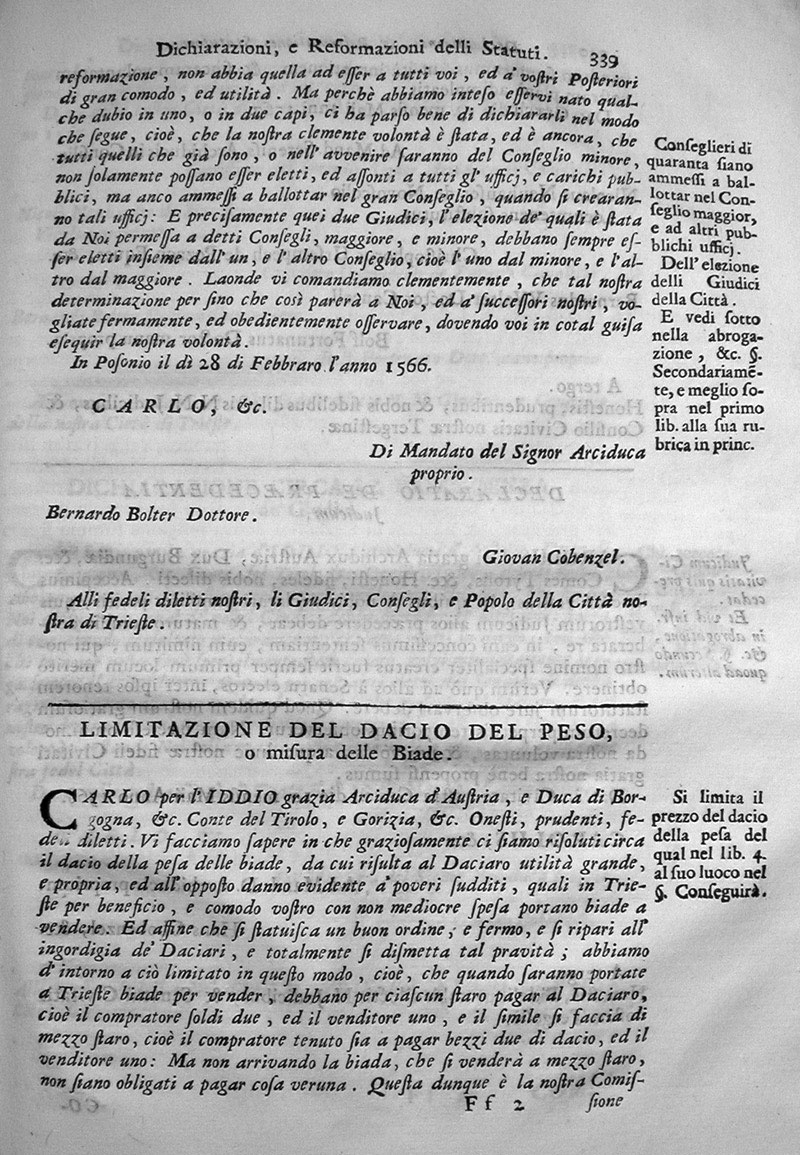 Dichiarazioni, e Reformazioni delli Statuti. 339
reformazione, non abbia quella ad eſſer a tutti voi, ed a' voſtri Poſteriori
di gran comodo, ed utilità. Ma perchè abbiamo inteſo eſſervi nato qual-
che dubio in uno, o in due capi, ci ha parſo bene di dichiararli nel modo
che ſegue, cioè, che la noſtra clemente volontà è ſtata, ed è ancora, che
tutti quelli che già ſono, o nell' avvenire faranno del Conſeglio minore,
non ſolamente poſſano eſſer eletti, ed aſſonti a tutti gl' ufficj, e carichi pub-
blici, ma anco ammeſſi a ballottar nel gran Conſeglio, quando ſi crearan-
no tali ufficj: E preciſamente quei due Giudici, l'elezione de' quali è ſtata
da Noi permeſſa a detti Conſegli, maggiore, e minore, debbano ſempre eſ-
ſer eletti inſieme dall' un, e l' altro Conſeglio, cioè l'uno dal minore, e l'al-
tro dal maggiore. Laonde vi comandiamo clementemente, che tal noſtra
determinazione per fino che così parerà a Noi, ed a' ſucceſſori noſtri, vo-
gliate fermamente, ed obedientemente oſſervare, dovendo voi in cotal guiſa
eſequir la noſtra volontà.
In Poſonio il dì 28 di Febbraro l'anno 1566.
CARLO, &c.
Di Mandato del Signor Arciduca
proprio.
Bernardo Bolter Dottore.
Giovan Cobenzel.
Alli fedeli diletti noſtri, li Giudici, Conſegli, e Popolo della Città no-
ſtra di Trieſte.
Conſeglieri di
quaranta ſiano
ammeſſi a bal-
lottar nel Con-
ſeglio maggior,
e ad altri pub-
blichi ufficj.
Dell' elezione
delli Giudici
della Città.
E vedi ſotto
nella abroga-
zione, &c. §.
Secondariamē-
te, e meglio ſo-
pra nel primo
lib. alla ſua ru-
brica in princ.
LIMITAZIONE DEL DACIO DEL PESO,
o miſura delle Biade.
CARLO per l'IDDIO grazia Arciduca d'Auſtria, e Duca di Bor-
gogna, &c. Conte del Tirolo, e Gorizia, &c. Oneſti, prudenti, fe-
de.. diletti. Vi facciamo ſapere in che grazioſamente ci ſiamo riſoluti circa
il dacio della peſa delle biade, da cui riſulta al Daciaro utilità grande,
e propria, ed all' oppoſto danno evidente a' poveri ſudditi, quali in Trie-
ſte per beneficio, e comodo voſtro con non mediocre ſpeſa portano biade a
vendere. Ed affine che ſi ſtatuiſca un buon ordine, e fermo, e ſi ripari all'
ingordigia de' Daciari, e totalmente ſi diſmetta tal pravità; abbiamo
d' intorno a ciò limitato in queſto modo, cioè, che quando ſaranno portate
a Trieſte biade per vender, debbano per ciaſcun ſtaro pagar al Daciaro,
cioè il compratore ſoldi due, ed il venditore uno, e il ſimile ſi faccia di
mezzo ſtaro, cioè il compratore tenuto ſia a pagar bezzi due di dacio, ed il
venditore uno: Ma non arrivando la biada, che ſi venderà a mezzo ſtaro,
non ſiano obligati a pagar coſa veruna. Queſta dunque è la noſtra Comiſ-
Ff 2 ſione
Si limita il
prezzo del dacio
della peſa del
qual nel lib. 4.
al ſuo luoco nel
§. Conſeguirà.